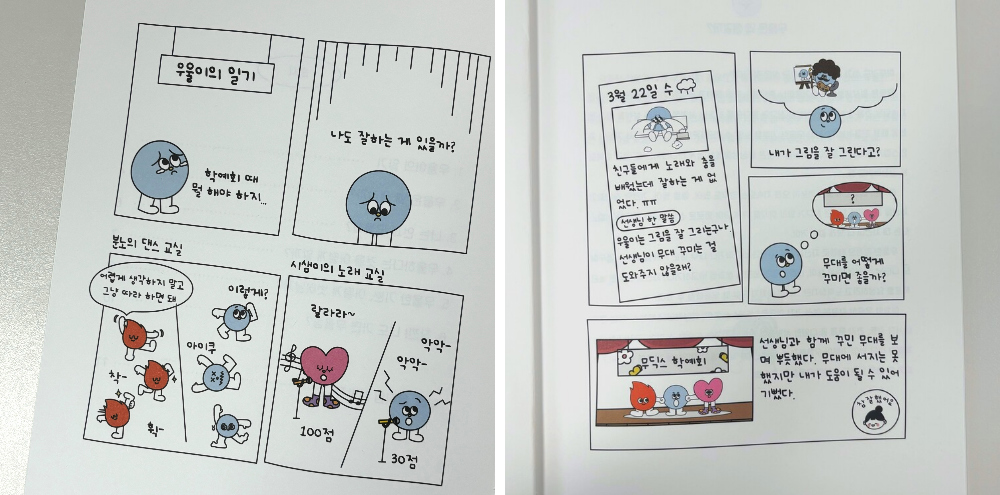 우울이의 일기
학예회 때
뭘 해야 하지...
나도 잘하는 게 있을까?
분노의 댄스 교실
어렵게 생각하지 말고
그냥 따라 하면 돼
이렇게?
아이쿠
착-
휙-
시샘이의 노래 교실
랄라라~
100점
악악-
악악-
30점
3월 22일 수
친구들에게 노래와 춤을
배웠는데 잘하는 게 없
었다. ㅠㅠ
선생님 한 말씀
우울이는 그림을 잘 그리는구나.
선생님이 무대 꾸미는 걸
도와주지 않을래?
내가 그림을 잘 그린다고?
?
무대를 어떻게
꾸미면 좋을까?
무딕스 학예회
선생님과 함께 꾸민 무대를 보
며 뿌듯했다. 무대에 서지는 못
했지만 내가 도움이 될 수 있어
기뻤다.
참 잘했어요